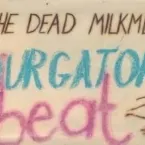 HE DEAD MILKME
URGATO
beat